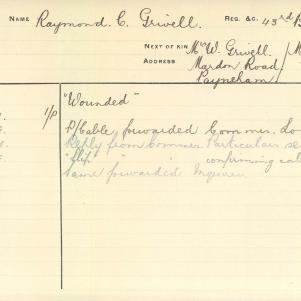 NAME Raymond. C. Grivell. REG. &C. 43rd
NEXT OF KIN Mr W. Grivell.
ADDRESS Mardon Road
Payneham
1/p "Wounded"
P/Cable forwarded Commr. Lo
Reply from Commr. Particulars se
"flip." confirming cal
Same forwarded